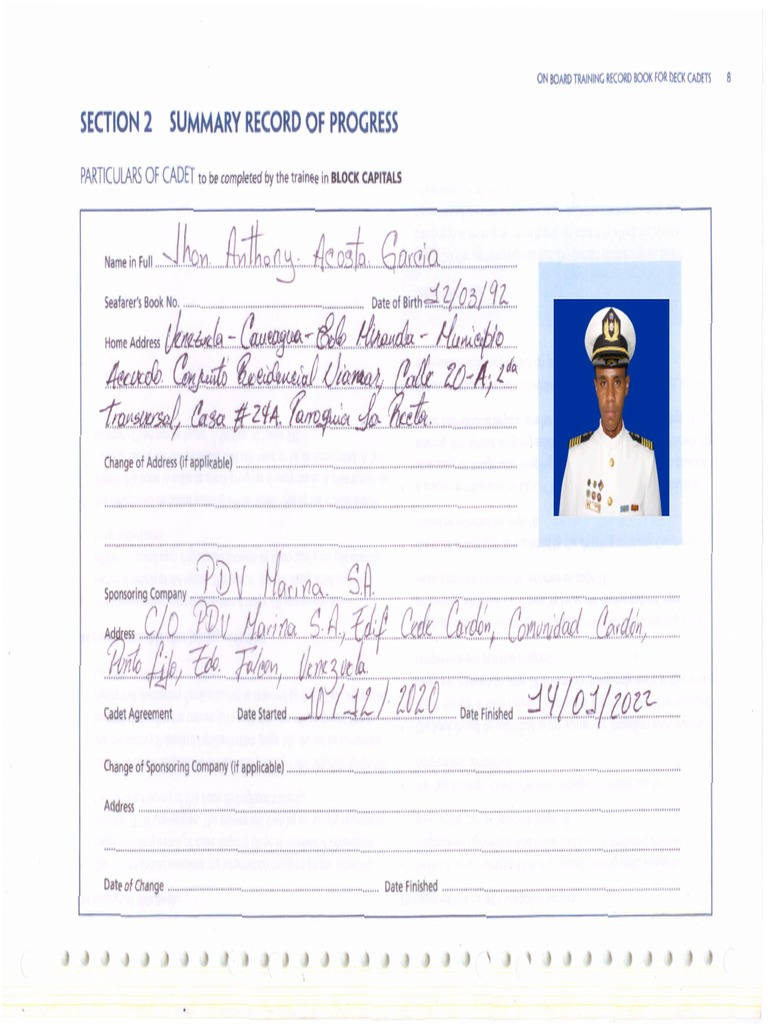 ON BOARD TRAINING RECORD BOOK FOR DECK CADETS 8
SECTION 2 SUMMARY RECORD OF PROGRESS
PARTICULARS OF CADET to be completed by the trainee in BLOCK CAPITALS
Name in Full Jhon. Anthony. Acosta. Garcia
Seafarer's Book No. Date of Birth 12/03/92
Home Address Venezuela - Caucagua - Edo Miranda - Municipio
Acevedo. Conjunto Residencial Viamar, Calle 20-A, 2da
Transversal, Casa #24A. Parroquia La
Change of Address (if applicable)
Sponsoring Company PDV Marina. S.A.
Address C/O PDV Marina S.A., Edif Cede Cardón, Comunidad Cardón,
Punto fijo, Edo. Falcon, Venezuela
Cadet Agreement Date Started 10/12/2020 Date Finished 14/01/2022
Change of Sponsoring Company (if applicable)
Address
Date of Change Date Finished